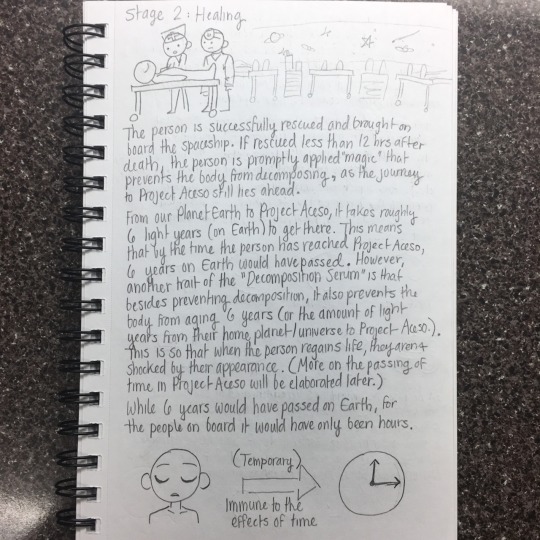 Stage 2: Healing
The person is successfully rescued and brought on
board the spaceship. If rescued less than 12 hrs after
death, the person is promptly applied "magic" that
prevents the body from decomposing, as the journey
to Project Aceso still lies ahead.
From our Planet Earth to Project Aceso, it takes roughly
6 light years (on Earth) to get there. This means
that by the time the person has reached Project Aceso,
6 years on Earth would have passed. However,
another trait of the "Decomposition Serum" is that
besides preventing decomposition, it also prevents the
body from aging 6 years (or the amount of light
years from their home planet/universe to Project Aceso.).
This is so that when the person regains life, they aren't
shocked by their appearance. (More on the passing of
time in Project Aceso will be elaborated later.)
While 6 years would have passed on Earth, for
the people on board it would have only been hours.
(Temporary)
Immune to the
effects of time